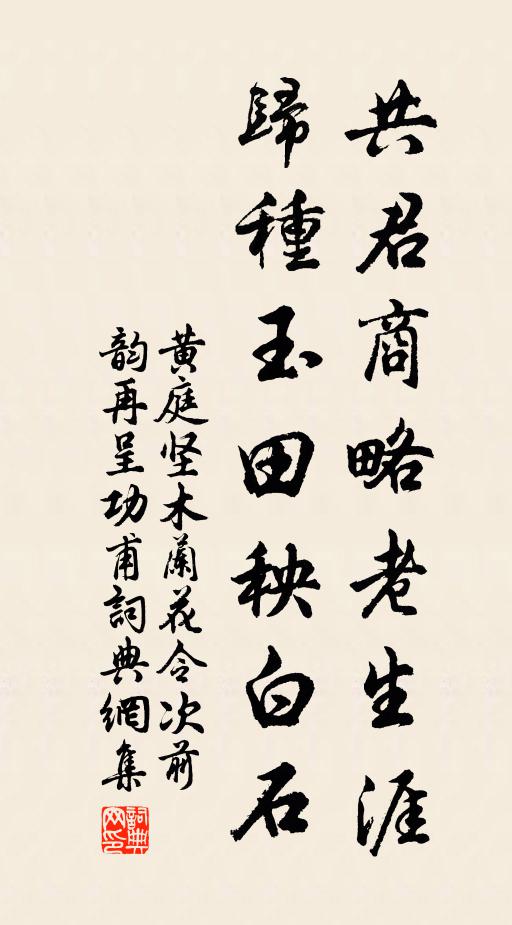 共君商略老生涯
歸種玉田秧白石
黄庭坚木蘭花令次前
韵再呈功甫詞典網集
詞典網印